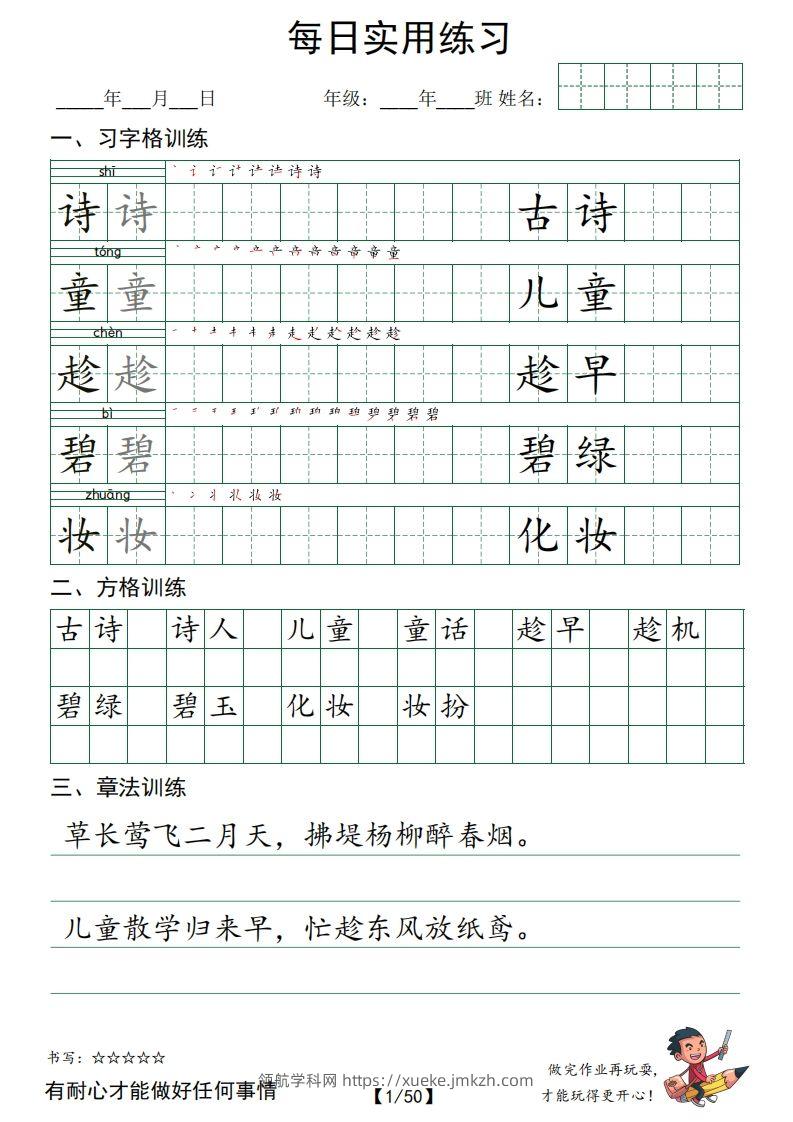 每日实用练习
_____年___月___日 年级：____年____班 姓名：
一、习字格训练
shī
诗 诗 古 诗
tóng
童 童 儿 童
chèn
趁 趁 趁 早
bì
碧 碧 碧 绿
zhuāng
妆 妆 化 妆
二、方格训练
古诗 诗人 儿童 童话 趁早 趁机
碧绿 碧玉 化妆 妆扮
三、章法训练
草长莺飞二月天，拂堤杨柳醉春烟。
儿童散学归来早，忙趁东风放纸鸢。
书写：☆☆☆☆☆
有耐心才能做好任何事情
领航学科网 https://xueke.jmkzh.com
【1/50】
做完作业再玩耍，
才能玩得更开心！